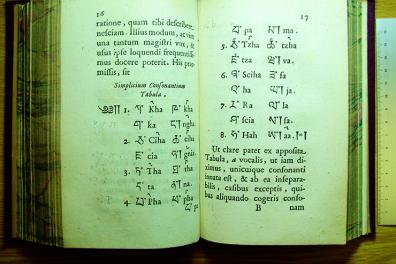 16
ratione, quam tibi describere
nesciam. Illius modum, et vim
una tantum magistri vox, &
usus ipse loquendi frequentissi-
mus docere poterit. His præ-
missis, sit
Simplicium Consonantium
Tabula.
༄༅། 1. ཀ་ Kha ཁ་ kha
ག་ ka ང། ngha.
2. ཅ་ Ciha ཆ་ ciha
ཇ་ cia ཉ། gnia.
3. ཏ་ Tha ཐ་ tha
ད་ ta ན། na.
4. པ་ Pha ཕ་ pha
17
བ་ pa མ། ma.
5. ཙ་ Tzha ཚ་ tzha
ཛ་ tza ཝ། va.
6. ཞ་ Sciha ཟ་ sa
འ་ ha ཡ། ja.
7. ར་ Ra ལ་ la
ཤ་ scia ས། sa.
8. ཧ་ Hah ཨ། aa.
Ut clare patet ex apposita
Tabula, a vocalis, ut jam di-
ximus, unicuique consonanti
innata est, & ab ea insepara-
bilis, casibus exceptis, qui-
bus aliquando cogeris conso-
B nam